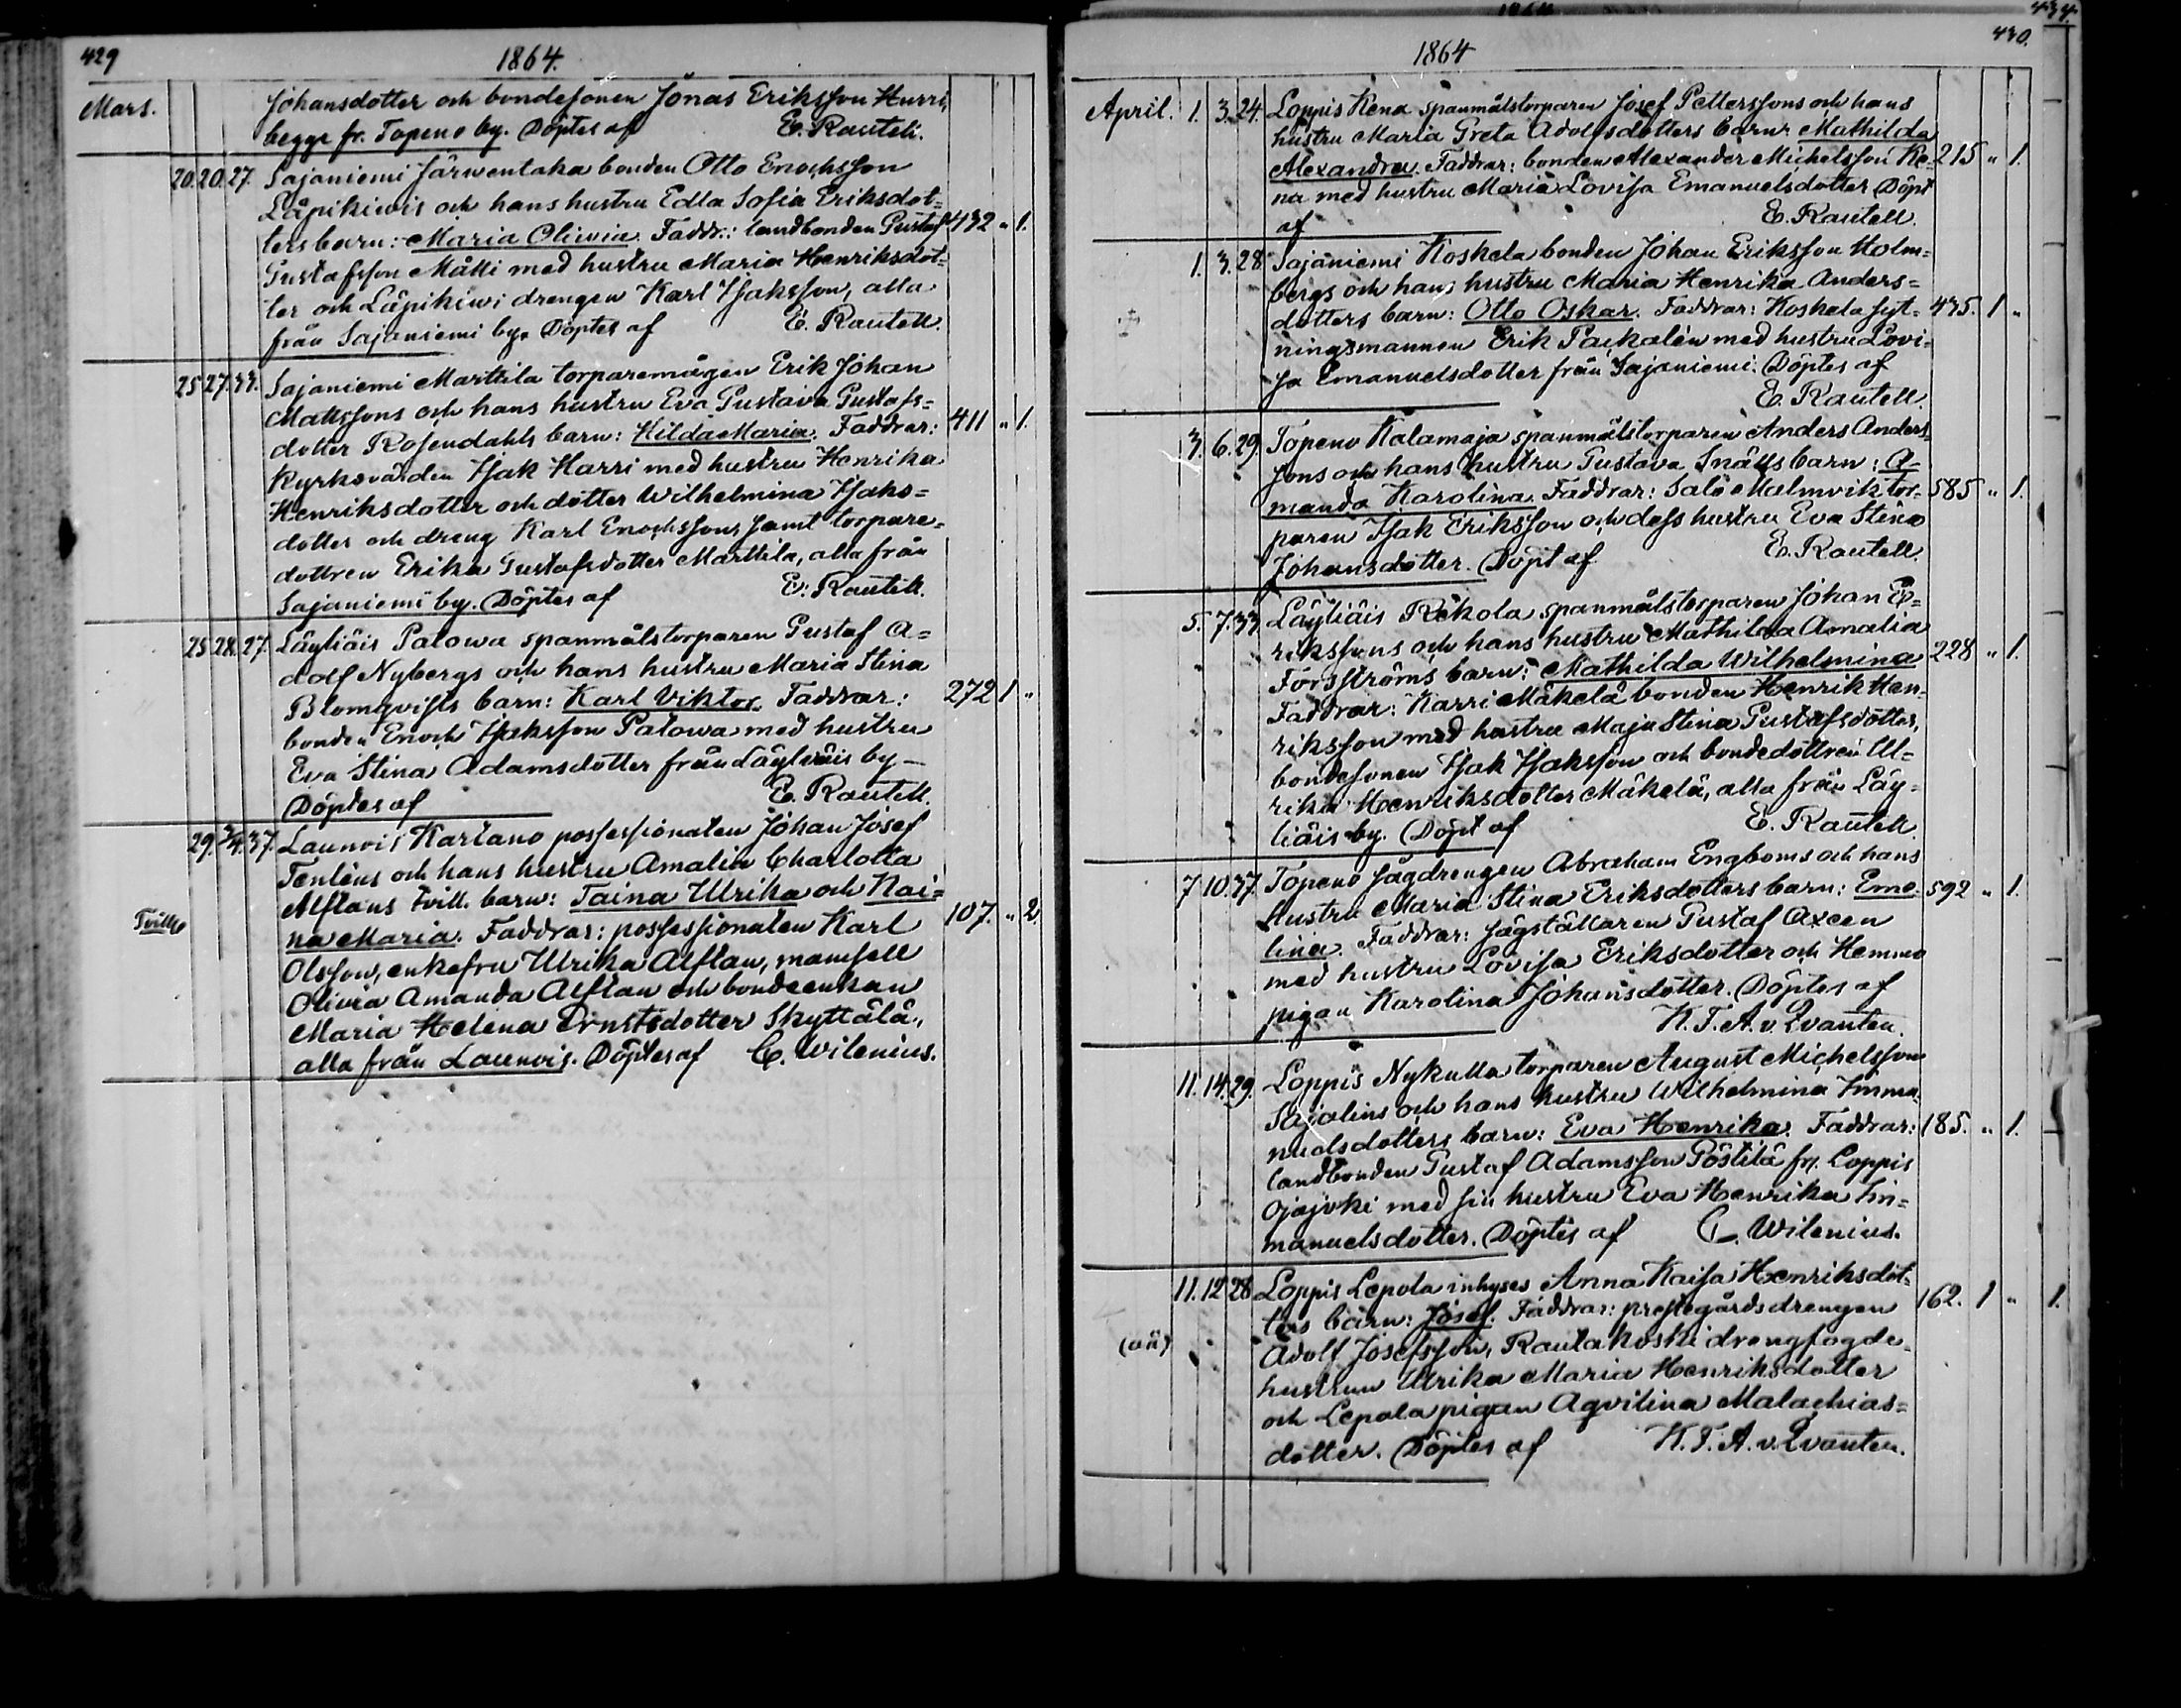 429
1864.
Mars.
Johansdotter och bondesonen Jonas Eriksson Hurri,
begge fr. Topeno by. Döptes af E. Rautell.
20. 20. 27. Sajaniemi Järwentaka bonden Otto Enochsson
Läpikiwis och hans hustru Edla Sofia Eriksdot-
ters barn: Maria Oliwia. Faddr.: landbonden Gustaf 432 " 1.
Gustafsson Mälli med hustru Maria Henriksdot-
ter och Läpikiwi drengen Karl Isaksson, alla
från Sajaniemi by. Döptes af E. Rautell.
25 27. 33. Sajaniemi Marttila torparemågen Erik Johan
Mattssons och hans hustru Eva Gustava Gustafs-
dotter Rosendahls barn: Hilda Maria. Faddrar: 411 " 1.
Kyrkovärden Isak Harri med hustru Henrika
Henriksdotter och dotter Wilhelmina Isaks-
dotter och dreng Karl Enochsson, samt torpare-
dottren Erika Gustafsdotter Marttila, alla från
Sajaniemi by. Döptes af E. Rautell.
25 28. 27. Läyliäis Palowa spanmålstorparen Gustaf A-
dolf Nybergs och hans hustru Maria Stina
Blomqvists barn: Karl Viktor. Faddrar: 272 1 "
bonden Enoch Isaksson Palowa med hustru
Eva Stina Adamsdotter från Läyliäis by –
Döptes af E. Rautell.
29. 3/4. 37. Launois Kartano possessionaten Johan Josef
Tenléns och hans hustru Amalia Charlotta
Alftans tvill. barn: Taina Ulrika och Nai-
Tvill.
na Maria. Faddrar: possessionaten Karl 107. " 2.
Olsson, enkefru Ulrika Alftan, mamsell
Olivia Amanda Alftan och bondeenkan
Maria Helena Ernstsdotter Skyttälä,
alla från Launois. Döptes af C. Wilenius.
434.
430.
1864
April. 1. 3. 24. Loppis Kena spanmålstorparen Josef Petterssons och hans
hustru Maria Greta Adolfsdotters barn: Mathilda
Alexandra. Faddrar: bonden Alexander Michelsson Ke- 215 " 1.
na med hustru Maria Lovisa Emanuelsdotter Döpt
af E. Rautell.
1. 3. 28. Sajaniemi Koskela bonden Johan Eriksson Holm-
bergs och hans hustru Maria Henrika Anders-
dotters barn: Otto Oskar. Faddrar: Koskela syt- 435. 1 "
ningsmannen Erik Paikalén med hustru Lovi-
sa Emanuelsdotter från Sajaniemi. Döptes af
E. Rautell.
3. 6. 29. Topeno Kalamaja spanmålstorparen Anders Anders-
sons och hans hustru Gustava Snälls barn: A-
manda Karolina. Faddrar: Salo Malmvik tor- 585 " 1.
paren Isak Eriksson och dess hustru Eva Stina
Johansdotter. Döpt af E. Rautell.
5. 7. 33. Läyliäis Rekola spanmålstorparen Johan E-
rikssons och hans hustru Mathilda Amalia
Forsströms barn: Mathilda Wilhelmina 228 " 1.
Faddrar: Karri Mäkelä bonden Henrik Hen-
riksson med hustru Maja Stina Gustafsdotter,
bondesonen Isak Isaksson och bondedottren Ul-
rika Henriksdotter Mäkelä, alla från Läy-
liäis by. Döpt af E. Rautell.
7 10. 37. Topeno sågdrengen Abraham Engboms och hans
hustru Maria Stina Eriksdotters barn: Eme- 592 " 1.
lina. Faddrar: sågställaren Gustaf Axeen
med hustru Lovisa Eriksdotter och Hemmo
pigan Karolina Johansdotter. Döptes af
K. F. A. v. Qvanten.
11. 14. 29. Loppis Nykulla torparen August Michelsson
Sajalins och hans hustru Wilhelmina Imma-
nuelsdotters barn: Eva Henrika. Faddrar: 185. " 1.
landbonden Gustaf Adamsson Pöstilä fr. Loppis
Ojajoki med sin hustru Eva Henrika Im-
manuelsdotter. Döptes af C. Wilenius.
11. 12 28 Loppis Lepola inhyses Anna Kaisa Henriksdot-
ters barn: Josef. Faddrar: prestegårdsdrengen 162. 1 " 1.
(oä)
Adolf Josefsson, Rautakoski drengfogde-
hustrun Ulrika Maria Henriksdotter
och Lepola pigan Aqvilina Malachias-
dotter. Döptes af K. F. A. v. Qvanten.